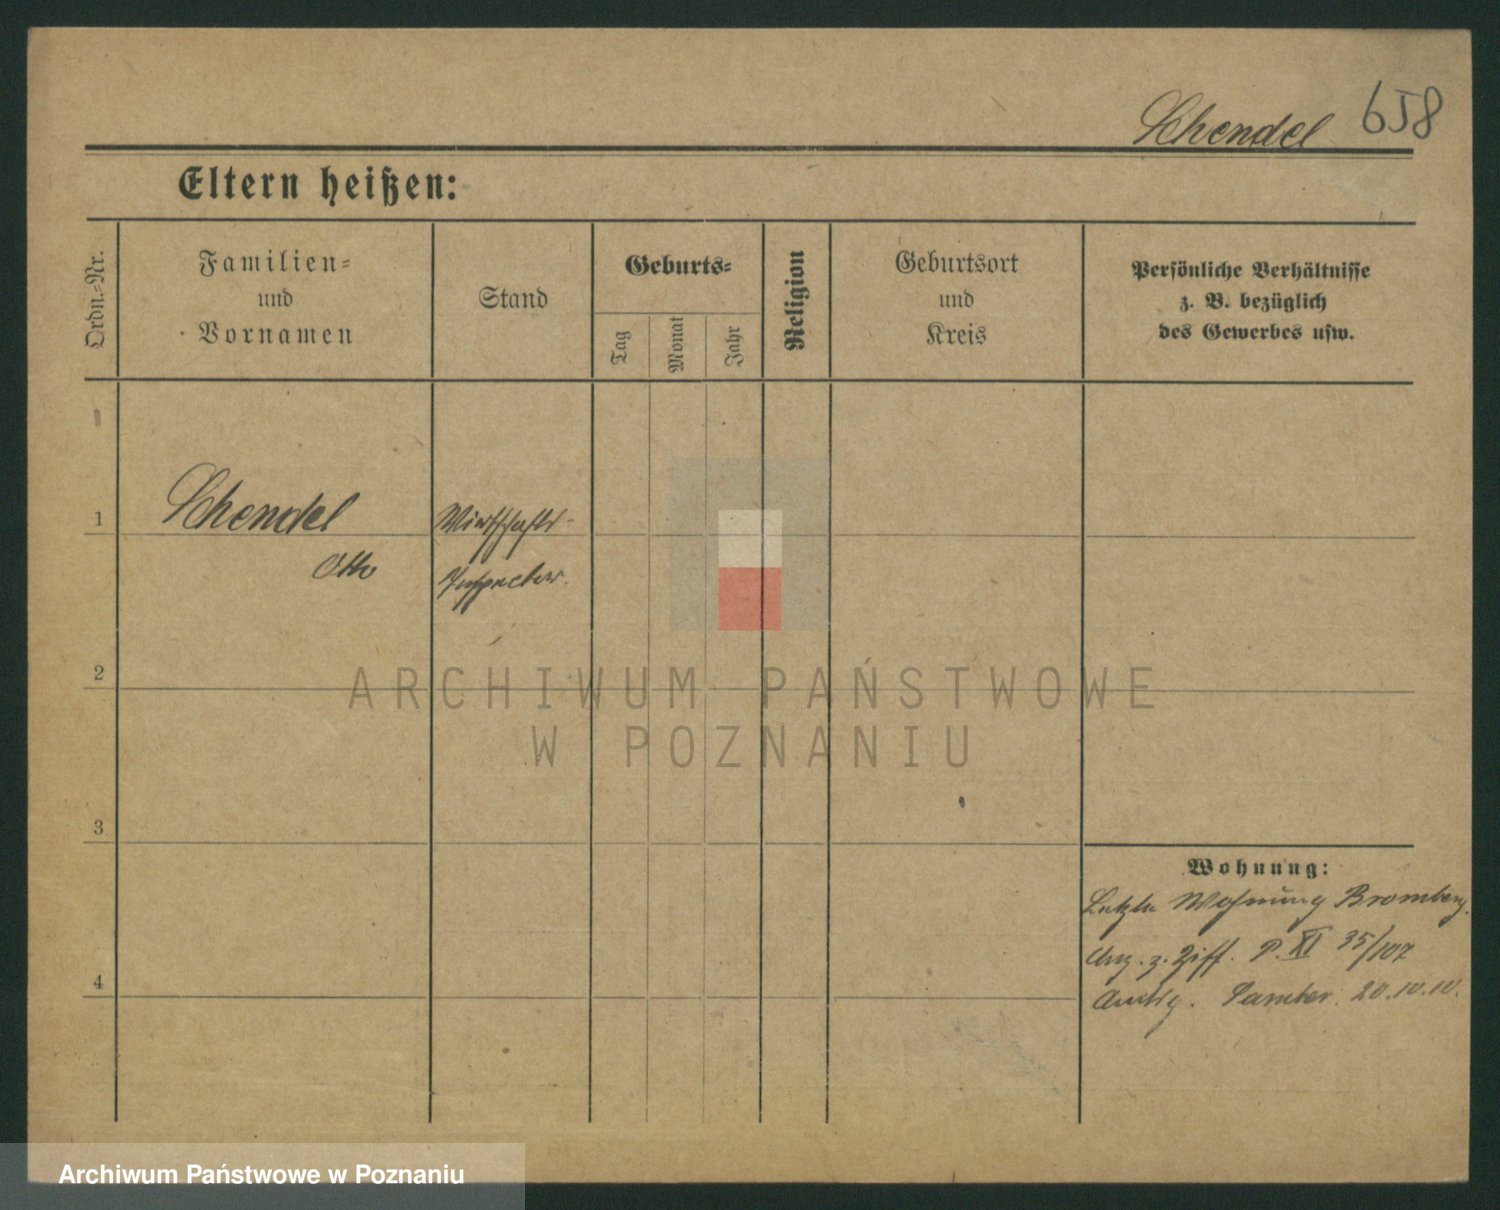 Schendel 658
Eltern heißen:
Ordn.-Nr.
Familien-
und
Vornamen
Stand
Geburts-
Tag
Monat
Jahr
Religion
Geburtsort
und
Kreis
Persönliche Verhältnisse
z. B. bezüglich
des Gewerbes usw.
1
Schendel
Otto
Wirtschafts-
Inspector.
2
3
4
Wohnung:
Letzte Wohnung Bromberg.
z. Ziff. P. XI 35/107
Samter. 20.10.10.
ARCHIWUM PAŃSTWOWE
W POZNANIU
Archiwum Państwowe w Poznaniu